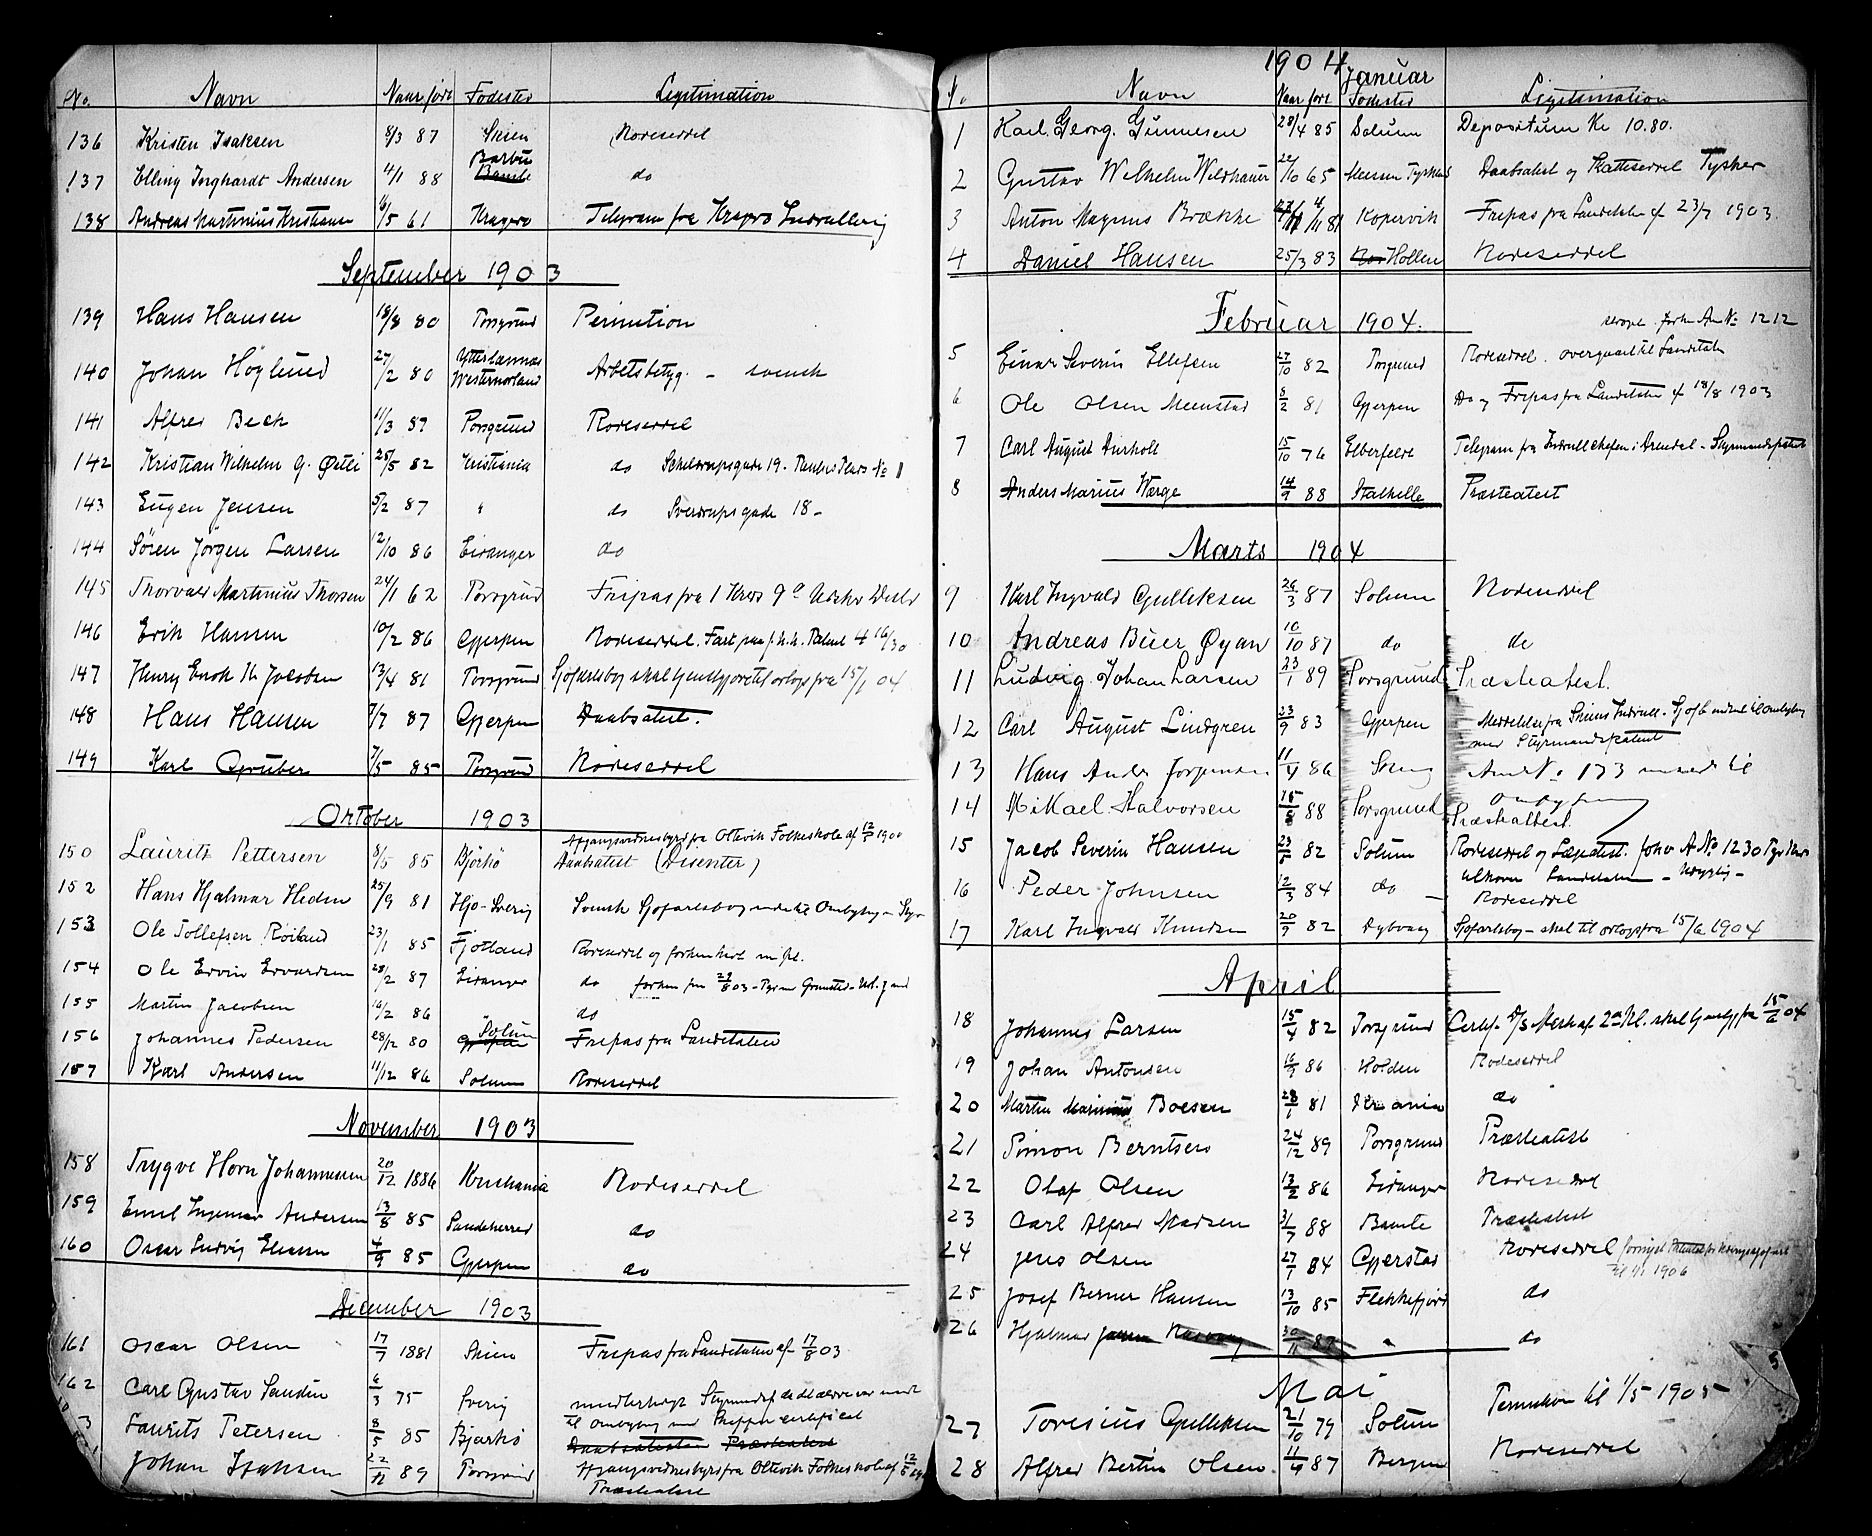 No. Navn Naar født Fødested Legitimation
136 Kristen Isaksen 8/3 87 Skien Rodeseddel
Barbu
137 Elling Inghardt Andersen 4/1 88 Bamle do
138 Andreas Martinius Kristiansen 6/5 61 Kragerø Telegram fra Kragerø Indrullering
September 1903
139 Hans Hansen 18/8 80 Porsgrund Permition
Ytterlannas
140 Johan Höglund 27/2 80 Westernorland Arbetsbetyg. - svensk
141 Alfred Beck 11/3 87 Porsgrund Rodeseddel
142 Kristian Wilhelm G. Østli 25/5 82 Kristiania do
143 Eugen Jensen 5/2 87 " do Sverdrupsgade 18 -
144 Sören Jörgen Larsen 12/10 86 Eidanger do
145 Thorvald Martinius Thorsen 24/1 62 Porsgrund Fripas fra 1 Kreds 9
146 Erik Hansen 10/2 86 Gjerpen Rodeseddel.
147 Henry Enok K. Jacobsen 13/4 81 Porsgrund Sjøfartsbog skal tjenstgjøre til orlogs fra 15/1 04
148 Hans Hansen 7/7 87 Gjerpen Daabsatest.
149 Karl Gruber 7/5 85 Porsgrund Rodeseddel
Oktober 1903
Afgangsvidnesbyrd fra Oltevik Folkeskole af 12/5 1900
150 Lauritz Pettersen 8/5 85 Björkö Daabsatest (Disenter)
152 Hans Hjalmar Heden 25/9 81 Hjo-Sverig Svensk Sjøfartsbog
153 Ole Tollefsen Röiland 23/1 85 Fjotland Rodeseddel og
154 Ole Ervin Edvardsen 28/2 87 Eidanger do
155 Martin Jacobsen 16/2 86 do
Solum
156 Johannes Pedersen 28/12 80 Gjerpen Fripas fra Landetaten
157 Karl Andersen 11/12 86 Solum Rodeseddel
November 1903
158 Trygve Horn Johannessen 20/12 1886 Kristiania Rodeseddel
159 Emil Ingemar Andersen 13/8 85 Sandeherred do
160 Oscar Ludvig Eliasen 4/9 85 Gjerpen do
December 1903
161 Oscar Olsen 17/7 1881 Skien Fripas fra Landetaten af 17/8 03
162 Carl Gustav Sandin 6/3 75 Sverig
til Ombytning med Skipper certificat
3 Laurits Petersen 8/5 85 Bjørkö Daabsattesten Præsteattest
Johan Isaksen 22/11 89 Porsgrund Afgangsvidnesbyrd fra Oltevik Folkeskole af 12/5
Præsteattest
1904
Januar
No. Navn Naar født Fødested Legitimation
1 Karl. Georg. Gunnesen 28/4 85 Solum Depositum Kr 10.80.
2 Gustav Wilhelm Wildhauer 22/10 65 Tyskland Daabsatest og Skatteseddel Tysker
3 Anton Magnus Brække 4/11 81 Kopervik Fripas fra Landetaten af 23/7 1903.
4 Daniel Hansen 25/3 83 Hollen Rodeseddel
Februar 1904.
An No 1212
5 Einar Severin Ellefsen 27/10 82 Porsgrund Rodeseddel. overgaaet til Landetaten
6 Ole Olsen Meenstad 8/2 81 Gjerpen Do og Fripas fra Landetaten af 18/8 1903
7 Carl August Aurholt 15/10 76 Elberfelde Telegram fra Indrullchefen i Arendal - Styrmandspatent
8 Anders Marius Værge 14/9 88 Stathelle Præsteatest
Marts 1904
9 Karl Ingvald Gulliksen 26/3 87 Solum Rodeseddel
10 Andreas Büer Øyan 10/10 87 do do
11 Ludvig Johan Larsen 23/1 89 Porsgrund Præsteatest.
12 Carl August Lindgren 23/9 83 Gjerpen Meddelelse fra Skiens Indrull.
med Styrmandspatent
13 Hans Ander Jørgensen 11/4 86 Skien AnmNo. 173 indsendt til
Ombytning
14 Mikael Halvorsen 15/8 88 Porsgrund Præsteattest.
15 Jacob Severin Hansen 23/5 82 Solum Rodeseddel og Lægeatest. forhv A No 1230
tilhører Landetaten - Udygtig -
16 Peder Johnsen 12/3 84 do - Rodeseddel
17 Karl Ingvald Knudsen 20/9 82 Dybvaag Sjøfartsbog - skal til orlogs fra 15/6 1904
April
18 Johannes Larsen 15/4 82 Porsgrund Certif. D/S Mask af 2den Kl. skal tjenstg fra 15/6 04
19 Johan Antonsen 16/9 86 Holden Rodeseddel
20 Martin Marinius Boesen 28/1 81 Kr ania do
21 Simon Berntsen 24/12 89 Porsgrund Præsteatest
22 Olaf Olsen 13/2 86 Eidanger Rodeseddel
23 Carl Alfred Madsen 31/7 88 Bamle Præsteatest
24 Jens Olsen 27/1 84 Gjerstad Rodeseddel
til 1/1 1906
25 Josef Berner Hansen 13/10 85 Flekkefjord do
26 Hjalmar 30/11 87 " do
Mai
27 Toresius Gulliksen 21/10 79 Solum Permition til 1/5 1905
28 Alfred Bertin Olsen 11/9 87 Bergen Rodeseddel
5